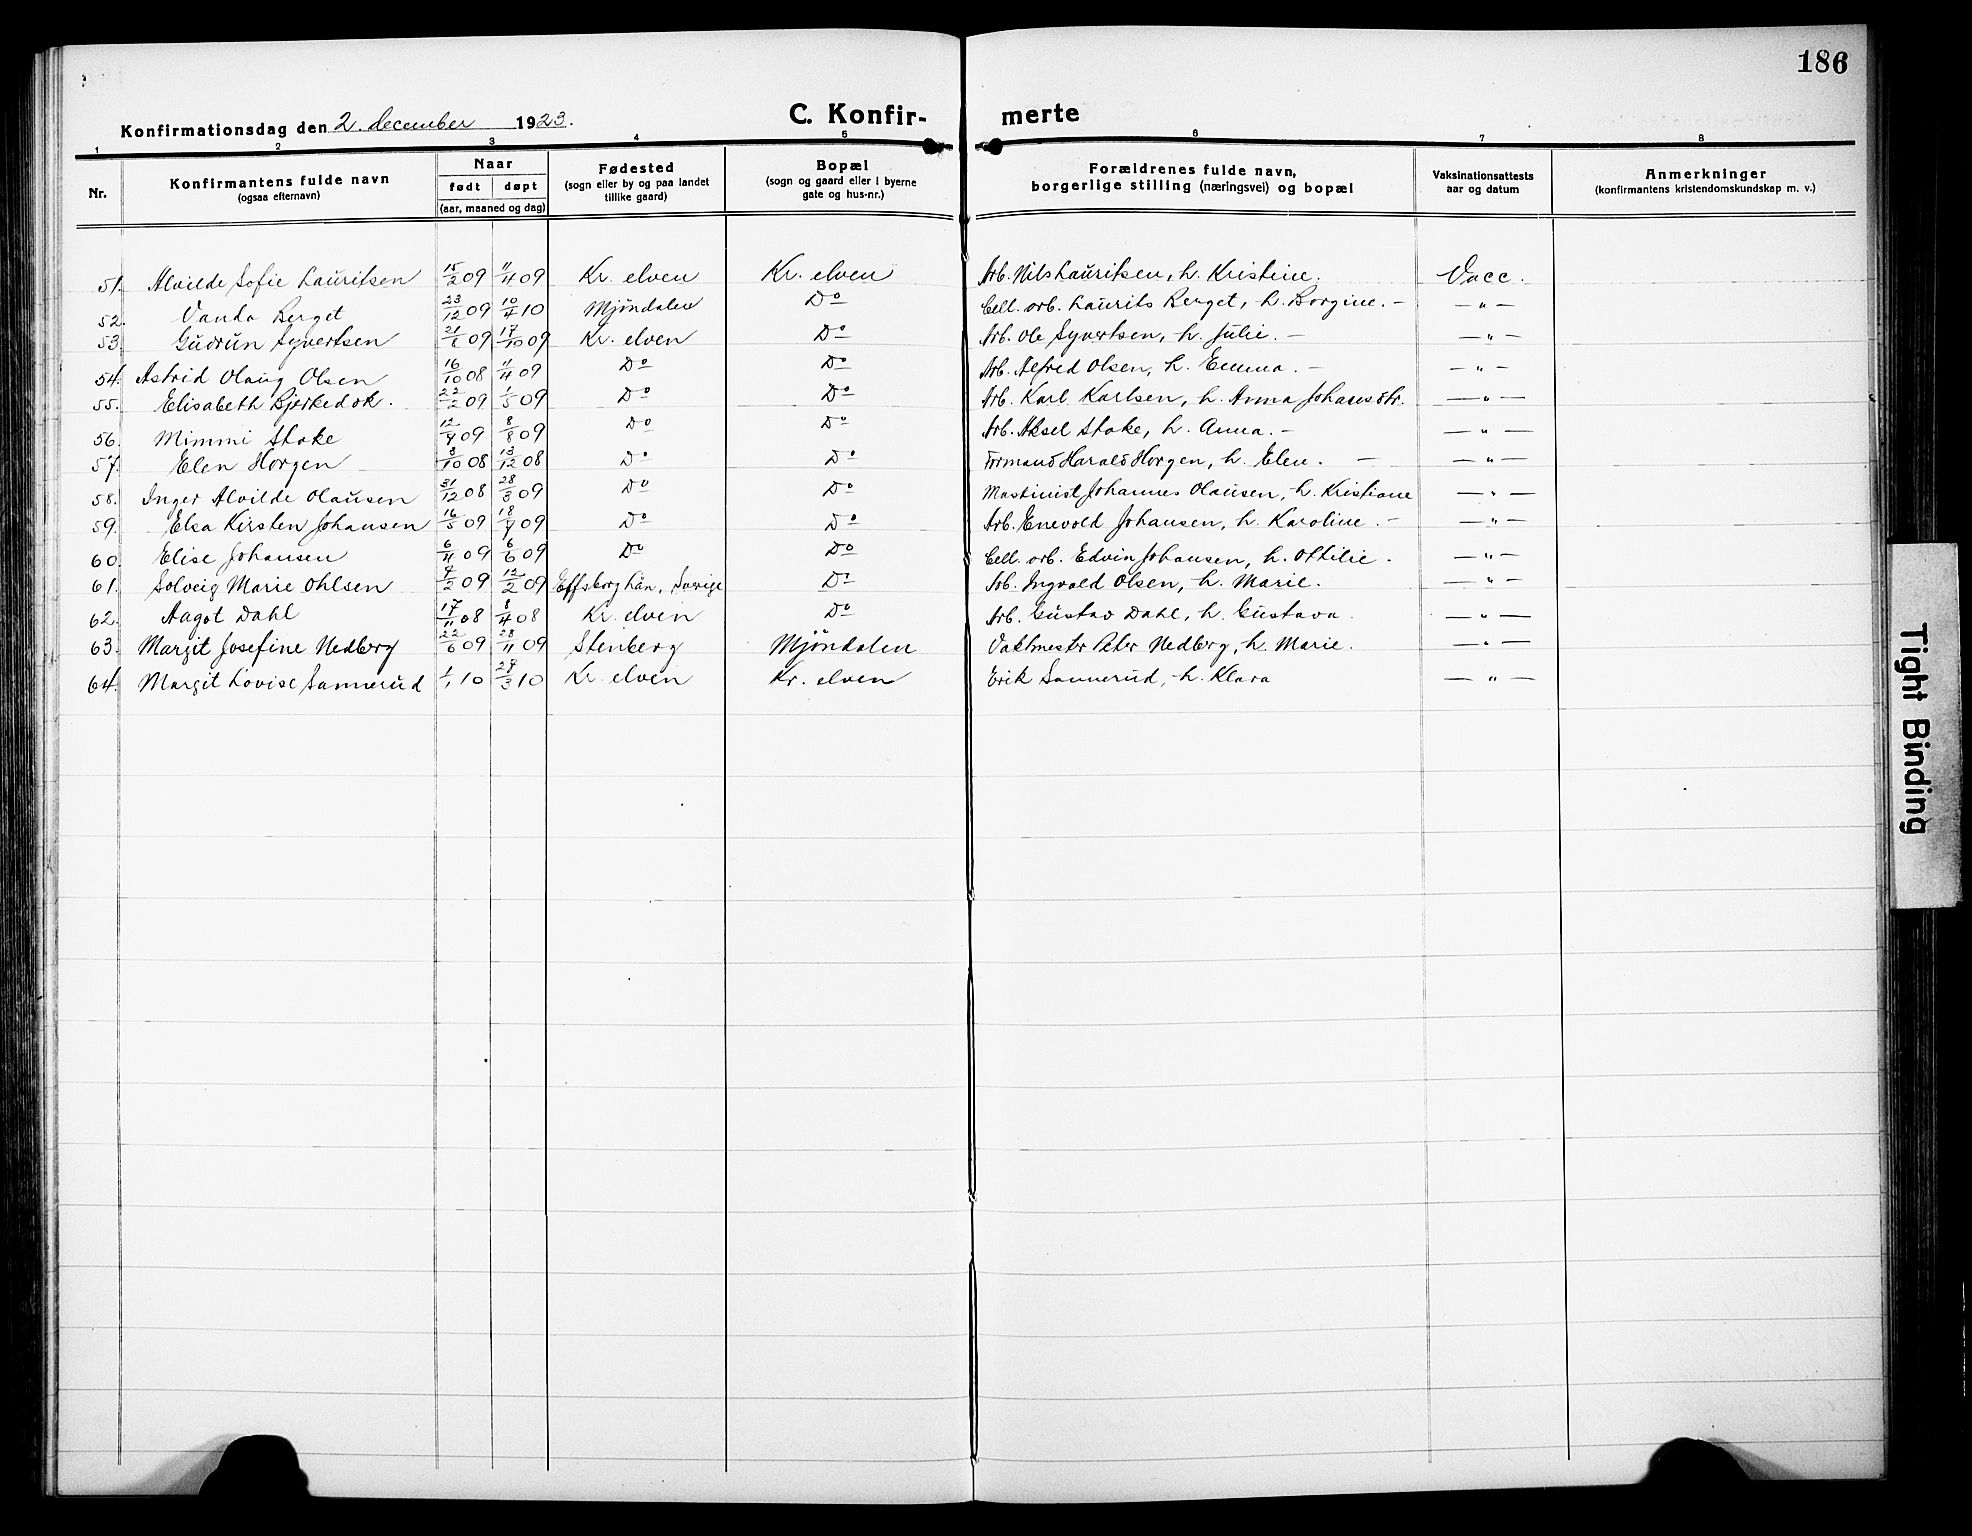 186
Konfirmationsdag den 2. december 1923.
C. Konfir- merte
1 2 3 4 5 6 7 8
Nr.
Konfirmantens fulde navn
(ogsaa efternavn)
Naar
født døpt
(aar, maaned og dag)
Fødested
(sogn eller by og paa landet
tillike gaard)
Bopæl
(sogn og gaard eller i byerne
gate og hus-nr.)
Forældrenes fulde navn,
borgerlige stilling (næringsvei) og bopæl
Vaksinationsattests
aar og datum
Anmerkninger
(konfirmantens kristendomskundskap m. v.)
51. Alvilde Sofie Lauritsen 15/2 09 11/4 09 Kr. elven Kr. elven Arb. Nils Lauritsen, h. Kristine. Vacc.
52. Vanda Berget 23/12 09 10/4 10 Mjøndalen Do Cell. arb. Laurits Berget, h. Borgine. — — " —
53. Gudrun Syvertsen 21/6 09 17/10 09 Kr. elven Do Arb. Ole Syvertsen, h. Julie. — — " —
54. Astrid Olaug Olsen 16/10 08 11/4 09 Do Do Arb. Alfred Olsen, h. Emma. — — " —
55. Elisabeth Bjerkedok. 22/2 09 1/5 09 Do Do Arb. Karl Karlsen, h. Anna Johansdtr. — " —
56. Mimmi Stake 12/4 09 8/8 09 Do Do Arb. Aksel Stake, h. Anna. — — " —
57. Elen Horgen 3/10 08 13/12 08 Do Do Formand Harald Horgen, h. Elen. — — " —
58. Inger Alvilde Olausen 31/12 08 28/3 09 Do Do Maskinist Johannes Olausen, h. Kristiane — " —
59. Elsa Kirsten Johansen 16/5 09 18/7 09 Do Do Arb. Enevold Johansen, h. Karoline. — — " —
60. Elise Johansen 6/4 09 6/6 09 Do Do Cell. arb. Edvin Johansen, h. Othilie. — " —
61. Solveig Marie Ohlsen 7/2 09 12/2 09 Elfsborg län, Sverige Do Arb. Ingvald Olsen, h. Marie. — " —
62. Aagot Dahl 17/11 08 8/4 08 Kr. elven Do Arb. Gustav Dahl, h. Gustava. — " —
63. Margit Josefine Nedberg 22/6 09 28/11 09 Stenberg Mjöndalen Vaktmester Peter Nedberg, h. Marie. — " —
64. Margit Lovise Sannerud 1/1 10 28/3 10 Kr. elven Kr. elven Erik Sannerud, h. Klara — " —
Tight Binding